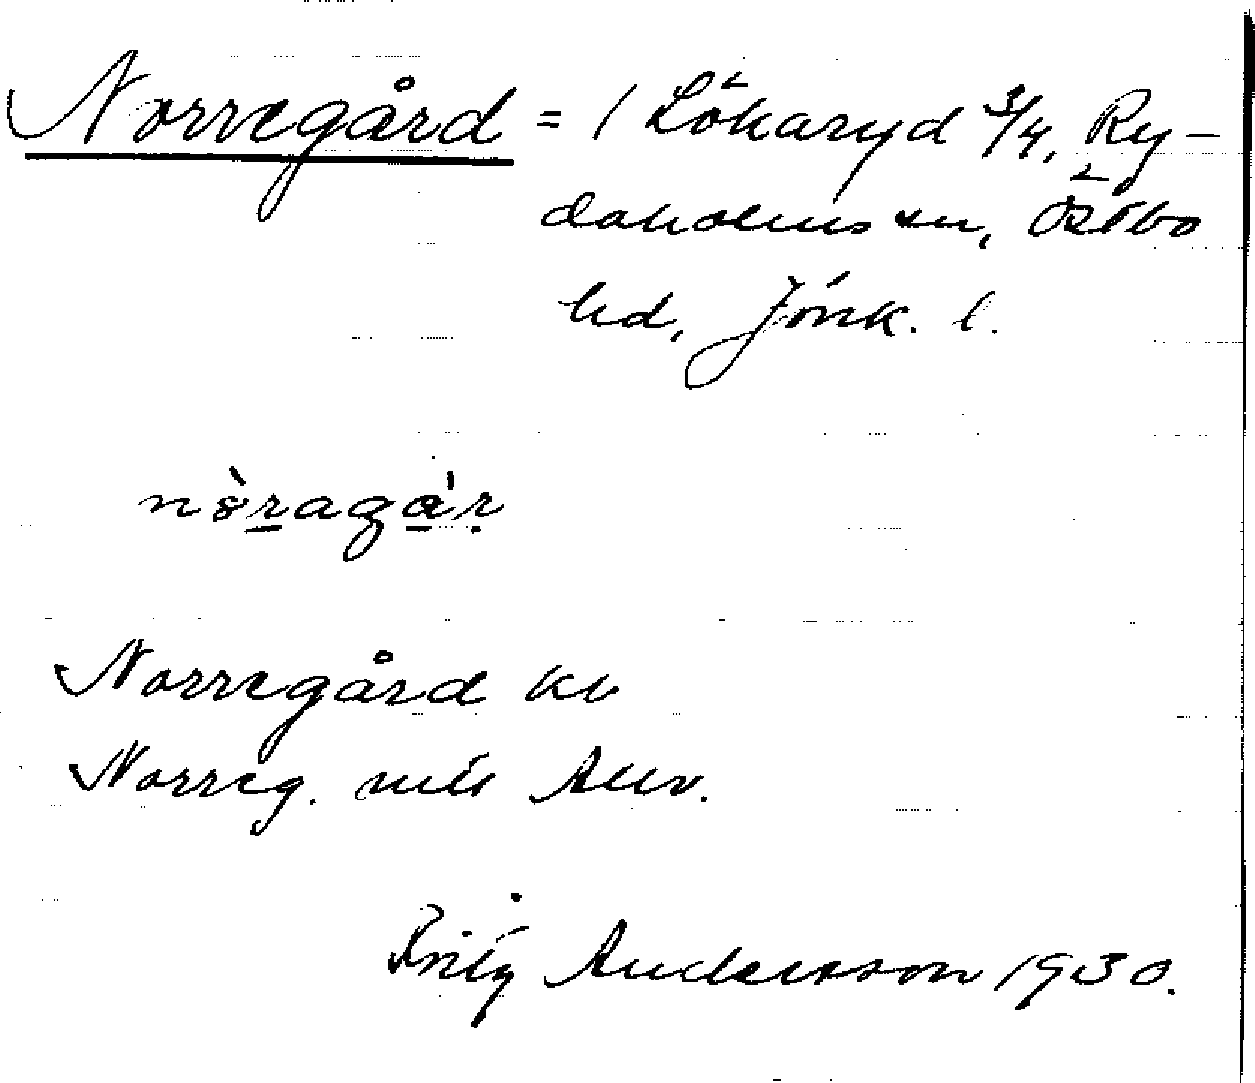 Norregård = 1 Lökaryd 3/4, Ry-
daholms sn, Östbo
hd, Jönk. l.
nòragá̱r̩
Norregård
Norreg.
Fritz Andersson 1930.